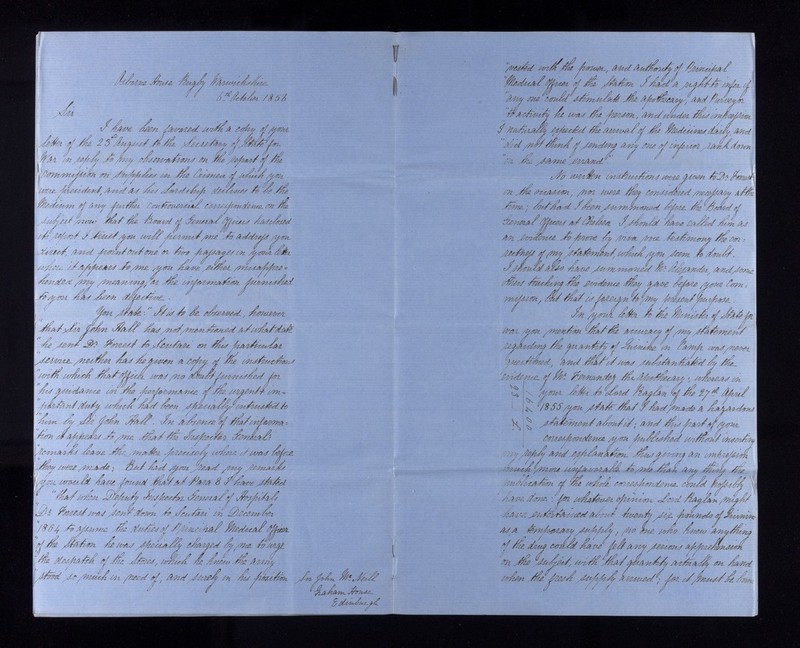 Osborne House Rugby Warwickshire
6th October 1856
Sir
I have been favored with a copy of your
letter of the 25th August to the Secretary of State for
War in reply to my observations on the report of the
Commission on Supplies in the Crimea of which you
were president, and as his Lordship declines to be the
Medium of any further controversial correspondence on the
subject now that the Board of General Officers have been
its report I trust you will permit me to address you
direct, and point out one or two passages in your letter
where it appears to me you have either misappre-
hended my meaning, or the information furnished
to you has been defective.
You state "It is to be observed, however
"that Sir John Hall has not mentioned at what date
"he sent Dr Forrest to Scutari on this particular
"service neither has he given a copy of the instructions
"with which that officer was no doubt furnished for
"his guidance in the performance of the urgent & im-
"portant duty which had been specially intrusted to
"him by Sir John Hall. In absence of that informa-
"tion it appears to me that the Inspector General's
"remarks leave the matter precisely where it was before
"they were made; But had you read my remarks
you would have found that at Para 8 I have stated
"that when Deputy Inspector General of Hospitals
"Dr Forrest was sent down to Scutari in December
"1854 to assume the duties of Principal Medical Officer
"of the Station he was specially charged by me to urge
the despatch of the Stores, which he knew the army
stood so much in need of, and surely in his position
Sir John McNeill
Graham House
Edinburgh
"vested with the power, and authority of Principal
"Medical Officer of the Station I had a right to infer if
"any one could stimulate the apothecary, and Purveyor
"to activity he was the person, and under this impression
I naturally expected the arrival of the Medicines daily, and
"did not think of sending any one of inferior rank down
"on the same errand."
No written instructions were given to Dr Forrest
on the occasion, nor were they considered necessary at the
time; but had I been summoned before the Board of
General Officers at Chelsea I should have called him as
an evidence to prove by viva voce testimony the cor-
rectness of my statement, which you seem to doubt.
I should also have summoned Mr Alexander, and some
others touching the evidence they gave before your Com-
mission, but that is foreign to my present purpose.
In your letter to the Minister of State for
War you mention that the accuracy of my statement
regarding the quantity of Quinine in Camp was never
questioned, and that it was substantiated by the
evidence of Mr Fernandez the Apothecary; whereas in
your letter to Lord Raglan of the 27th April
1855 you state that I had made a hazardous
statement about it; and this part of your
correspondence you published without inserting
my reply and explanation thus giving an impression
much more unfavorable to me than any thing the
publication of the whole correspondence could possibly
have done; for whatever opinion Lord Raglan might
have entertained about twenty six pounds of Quinine
as a temporary supply, no one who knew anything
of the drug could have felt any serious apprehension
on the subject, with that quantity actually on hand
when the fresh supply arrived; for it must be borne